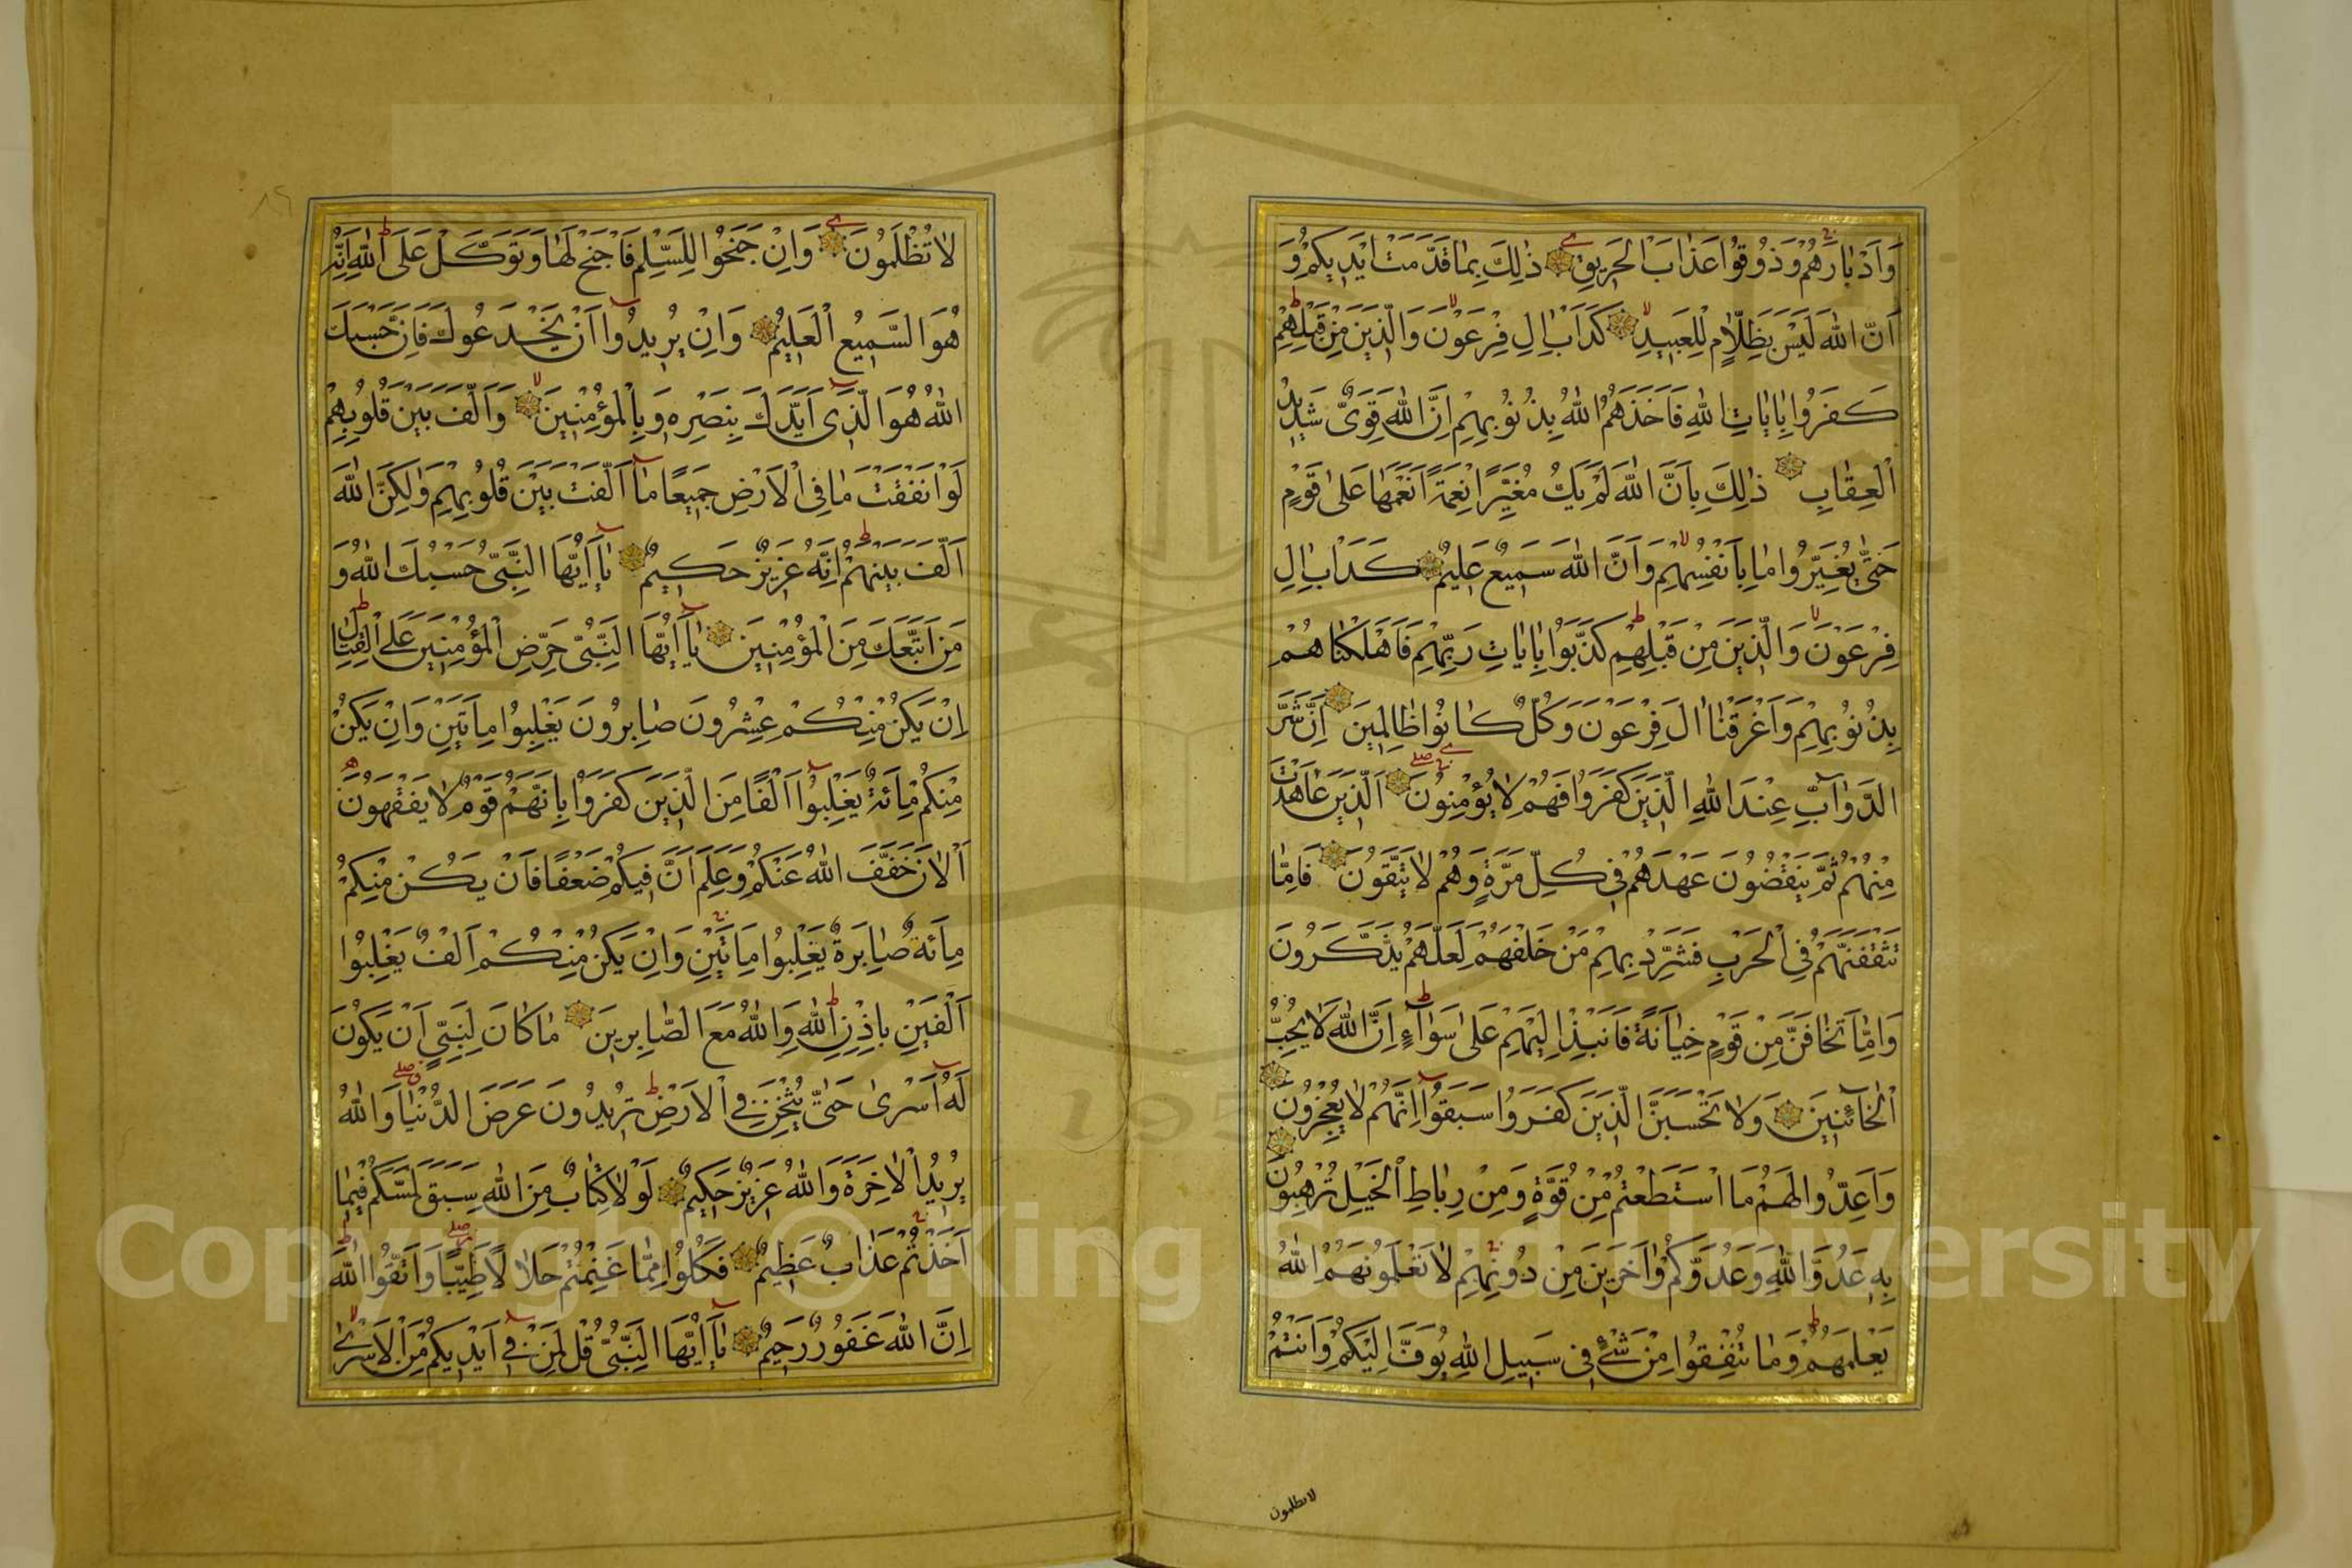 وَاَدْبَارَهُمْ وَذُوقُوا عَذَابَ الْحَرِيقِ ذٰلِكَ بِمَا قَدَّمَتْ اَيْدِيكُمْ وَ
اَنَّ اللّٰهَ لَيْسَ بِظَلَّامٍ لِلْعَبِيدِ كَدَاْبِ اٰلِ فِرْعَوْنَ وَالَّذِينَ مِنْ قَبْلِهِمْ
كَفَرُوا بِاٰيَاتِ اللّٰهِ فَاَخَذَهُمُ اللّٰهُ بِذُنُوبِهِمْ اِنَّ اللّٰهَ قَوِىٌّ شَدِيدُ
الْعِقَابِ ذٰلِكَ بِاَنَّ اللّٰهَ لَمْ يَكُ مُغَيِّرًا نِعْمَةً اَنْعَمَهَا عَلٰى قَوْمٍ
حَتّٰى يُغَيِّرُوا مَا بِاَنْفُسِهِمْ وَاَنَّ اللّٰهَ سَمِيعٌ عَلِيمٌ كَدَاْبِ اٰلِ
فِرْعَوْنَ وَالَّذِينَ مِنْ قَبْلِهِمْ كَذَّبُوا بِاٰيَاتِ رَبِّهِمْ فَاَهْلَكْنَاهُمْ
بِذُنُوبِهِمْ وَاَغْرَقْنَا اٰلَ فِرْعَوْنَ وَكُلٌّ كَانُوا ظَالِمِينَ اِنَّ شَرَّ
الدَّوَآبِّ عِنْدَ اللّٰهِ الَّذِينَ كَفَرُوا فَهُمْ لَا يُؤْمِنُونَ اَلَّذِينَ عَاهَدْتَ
مِنْهُمْ ثُمَّ يَنْقُضُونَ عَهْدَهُمْ فِى كُلِّ مَرَّةٍ وَهُمْ لَا يَتَّقُونَ فَاِمَّا
تَثْقَفَنَّهُمْ فِى الْحَرْبِ فَشَرِّدْ بِهِمْ مَنْ خَلْفَهُمْ لَعَلَّهُمْ يَذَّكَّرُونَ
وَاِمَّا تَخَافَنَّ مِنْ قَوْمٍ خِيَانَةً فَانْبِذْ اِلَيْهِمْ عَلٰى سَوَآءٍ اِنَّ اللّٰهَ لَا يُحِبُّ
الْخَآئِنِينَ وَلَا تَحْسَبَنَّ الَّذِينَ كَفَرُوا سَبَقُوا اِنَّهُمْ لَا يُعْجِزُونَ
وَاَعِدُّوا لَهُمْ مَا اسْتَطَعْتُمْ مِنْ قُوَّةٍ وَمِنْ رِبَاطِ الْخَيْلِ تُرْهِبُونَ
بِهِ عَدُوَّ اللّٰهِ وَعَدُوَّكُمْ وَاٰخَرِينَ مِنْ دُونِهِمْ لَا تَعْلَمُونَهُمُ اللّٰهُ
يَعْلَمُهُمْ وَمَا تُنْفِقُوا مِنْ شَىْءٍ فِى سَبِيلِ اللّٰهِ يُوَفَّ اِلَيْكُمْ وَاَنْتُمْ
لا تظلمون
لَا تُظْلَمُونَ وَاِنْ جَنَحُوا لِلسَّلْمِ فَاجْنَحْ لَهَا وَتَوَكَّلْ عَلَى اللّٰهِ اِنَّهُ
هُوَ السَّمِيعُ الْعَلِيمُ وَاِنْ يُرِيدُوا اَنْ يَخْدَعُوكَ فَاِنَّ حَسْبَكَ
اللّٰهُ هُوَ الَّذِى اَيَّدَكَ بِنَصْرِهِ وَبِالْمُؤْمِنِينَ وَاَلَّفَ بَيْنَ قُلُوبِهِمْ
لَوْ اَنْفَقْتَ مَا فِى الْاَرْضِ جَمِيعًا مَا اَلَّفْتَ بَيْنَ قُلُوبِهِمْ وَلٰكِنَّ اللّٰهَ
اَلَّفَ بَيْنَهُمْ اِنَّهُ عَزِيزٌ حَكِيمٌ يَا اَيُّهَا النَّبِىُّ حَسْبُكَ اللّٰهُ وَ
مَنِ اتَّبَعَكَ مِنَ الْمُؤْمِنِينَ يَا اَيُّهَا النَّبِىُّ حَرِّضِ الْمُؤْمِنِينَ عَلَى الْقِتَالِ
اِنْ يَكُنْ مِنْكُمْ عِشْرُونَ صَابِرُونَ يَغْلِبُوا مِاَتَيْنِ وَاِنْ يَكُنْ
مِنْكُمْ مِائَةٌ يَغْلِبُوا اَلْفًا مِنَ الَّذِينَ كَفَرُوا بِاَنَّهُمْ قَوْمٌ لَا يَفْقَهُونَ
اَلْاٰنَ خَفَّفَ اللّٰهُ عَنْكُمْ وَعَلِمَ اَنَّ فِيكُمْ ضَعْفًا فَاِنْ يَكُنْ مِنْكُمْ
مِائَةٌ صَابِرَةٌ يَغْلِبُوا مِائَتَيْنِ وَاِنْ يَكُنْ مِنْكُمْ اَلْفٌ يَغْلِبُوا
اَلْفَيْنِ بِاِذْنِ اللّٰهِ وَاللّٰهُ مَعَ الصَّابِرِينَ مَا كَانَ لِنَبِىٍّ اَنْ يَكُونَ
لَهُ اَسْرٰى حَتّٰى يُثْخِنَ فِى الْاَرْضِ تُرِيدُونَ عَرَضَ الدُّنْيَا وَاللّٰهُ
يُرِيدُ الْاٰخِرَةَ وَاللّٰهُ عَزِيزٌ حَكِيمٌ لَوْلَا كِتَابٌ مِنَ اللّٰهِ سَبَقَ لَمَسَّكُمْ فِيمَا
اَخَذْتُمْ عَذَابٌ عَظِيمٌ فَكُلُوا مِمَّا غَنِمْتُمْ حَلَالًا طَيِّبًا وَاتَّقُوا اللّٰهَ
اِنَّ اللّٰهَ غَفُورٌ رَحِيمٌ يَا اَيُّهَا النَّبِىُّ قُلْ لِمَنْ فِى اَيْدِيكُمْ مِنَ الْاَسْرٰى
Copyright © King Saud University